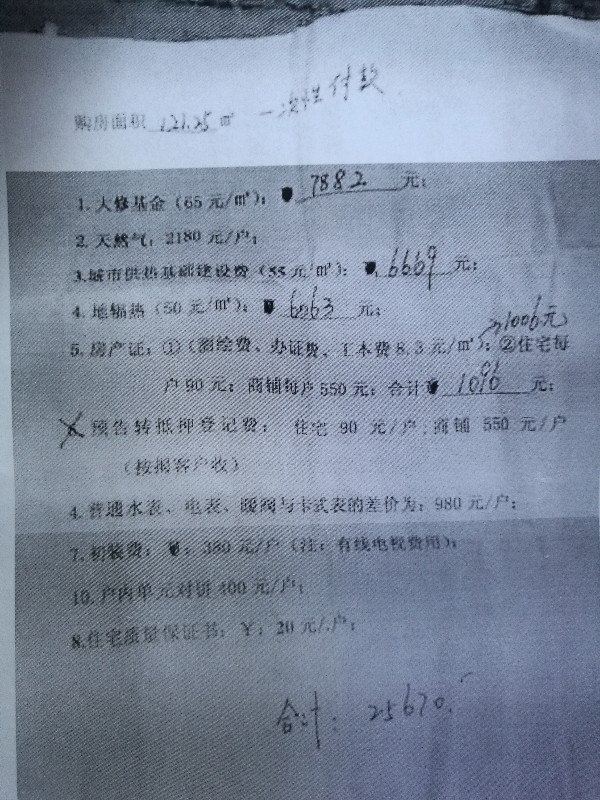 购房面积 121.25 ㎡ 一次性付款
1.大修基金(65元/㎡): 7882 元;
2.天然气: 2180元/户;
3.城市供热基础建设费(55元/㎡): 6669 元;
4.地辐热(50元/㎡): 6063 元;
→1006元
5.房产证:①(测绘费、办证费、工本费8.3元/㎡);②住宅每
户90元; 商铺每户550元; 合计 1096 元;
预告转抵押登记费: 住宅 90 元/户;商铺 550 元/户
(按揭客户收)
4.普通水表、电表、暖阀与卡式表的差价为: 980元/户;
7.初装费: ¥: 380元/户(注: 有线电视费用);
10.户内单元对讲400元/户;
8.住宅质量保证书: ¥: 20元/户;
合计: 25670.